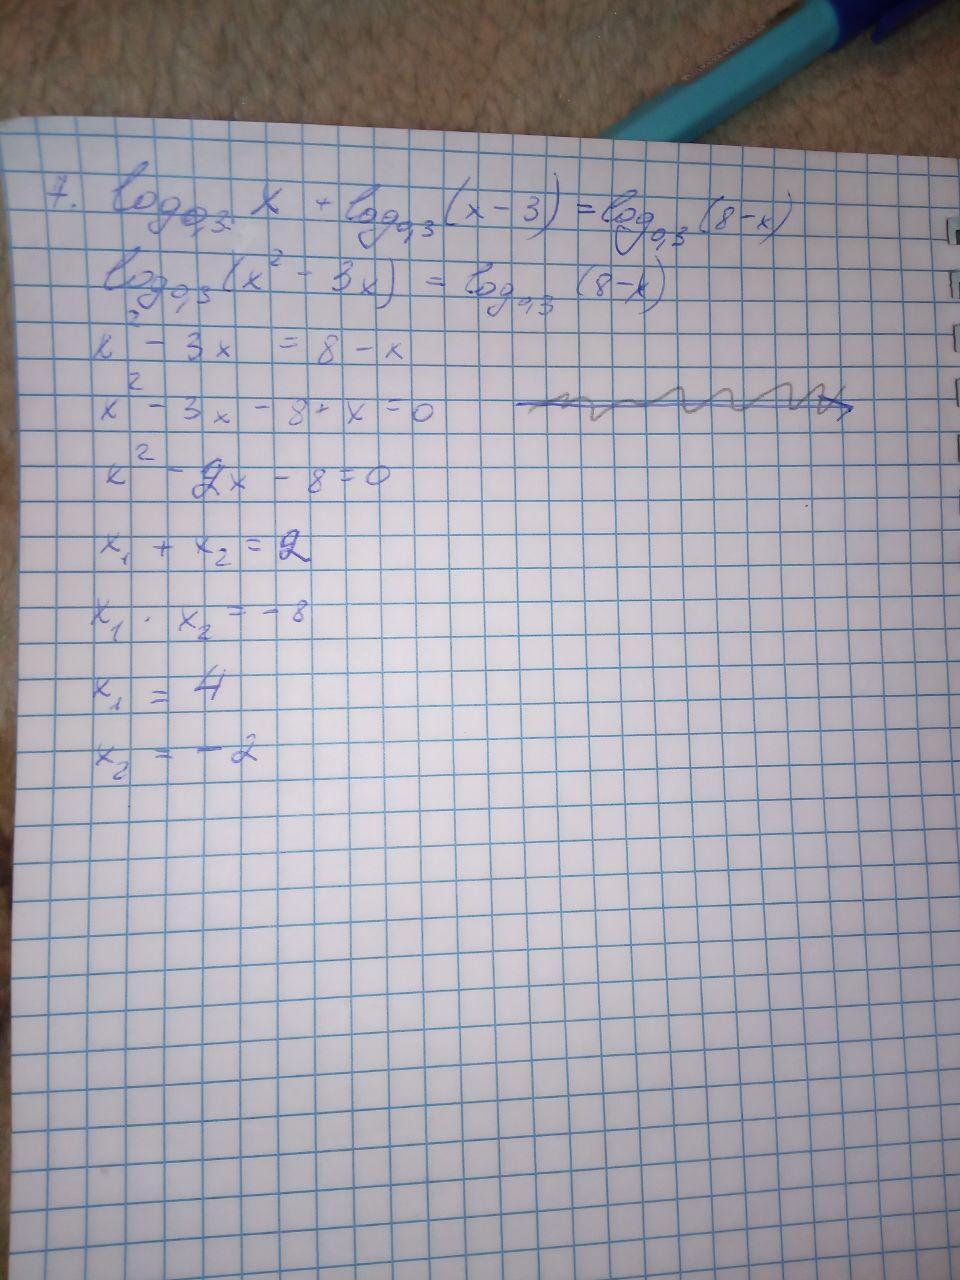 7. log₀,₃ x + log₀,₃ (x - 3) = log₀,₃ (8 - x)
log₀,₃ (x² - 3x) = log₀,₃ (8 - x)
x² - 3x = 8 - x
x² - 3x - 8 + x = 0
x² - 2x - 8 = 0
x₁ + x₂ = 2
x₁ · x₂ = -8
x₁ = 4
x₂ = -2